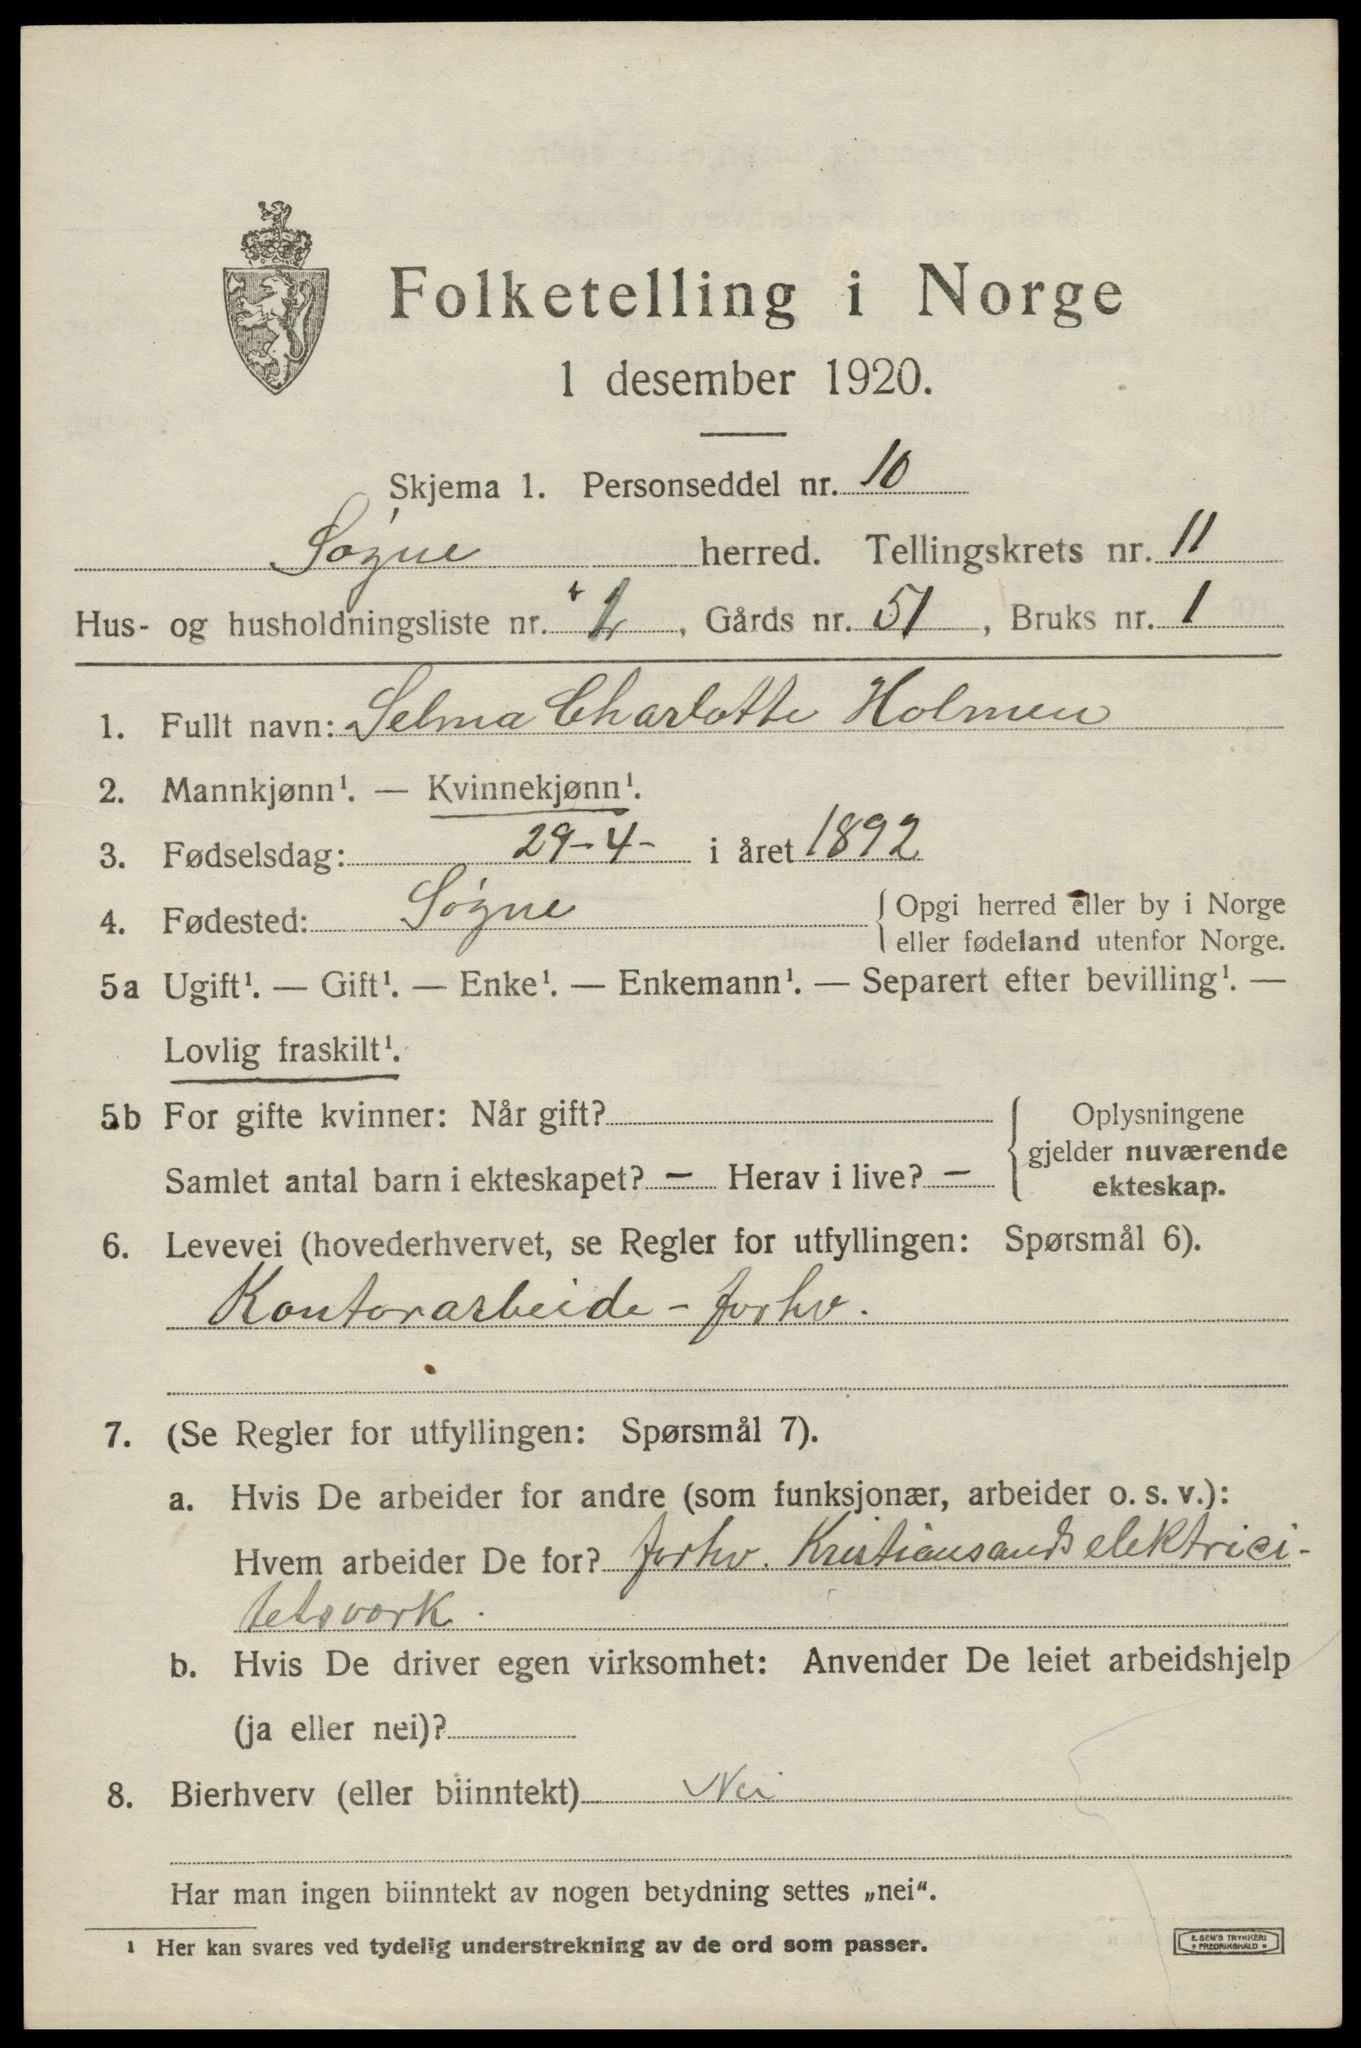 Folketelling i Norge
1 desember 1920.
Skjema 1. Personseddel nr. 10
Søgne herred. Tellingskrets nr. 11
Hus- og husholdningsliste nr. , Gårds nr. 51, Bruks nr. 1
1. Fullt navn: Selma Charlotte Holmen
2. Mannkjønn¹. — Kvinnekjønn¹.
3. Fødselsdag: 29-4- i året 1892
4. Fødested: Søgne { Opgi herred eller by i Norge
eller fødeland utenfor Norge.
5a Ugift¹. — Gift¹. — Enke¹. — Enkemann¹. — Separert efter bevilling¹. —
Lovlig fraskilt¹.
5b For gifte kvinner: Når gift?
Samlet antal barn i ekteskapet? — Herav i live? —
Oplysningene
gjelder nuværende
ekteskap.
6. Levevei (hovederhvervet, se Regler for utfyllingen: Spørsmål 6).
Kontorarbeide - forhv.
7. (Se Regler for utfyllingen: Spørsmål 7).
a. Hvis De arbeider for andre (som funksjonær, arbeider o. s. v.):
Hvem arbeider De for? forhv. Kristiansands elektrici-
tetsværk.
b. Hvis De driver egen virksomhet: Anvender De leiet arbeidshjelp
(ja eller nei)?
8. Bierhverv (eller biinntekt) Nei
Har man ingen biinntekt av nogen betydning settes „nei“.
¹ Her kan svares ved tydelig understrekning av de ord som passer.
E. SEM'S TRYKKERI
FREDRIKSHALD